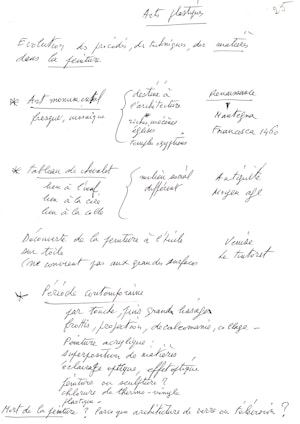 Arts plastiques
25
Evolution des procédés, des techniques, des matières
dans la peinture.
* Art monumental
fresque, mosaïque
destiné à
l'architecture
riches mécènes
églises
temples égyptiens
Renaissance
Mantegna
Francesca 1460
* Tableau de chevalet
lien à l'oeuf
lien à la cire
lien à la colle
milieu social
différent
Antiquité
Moyen age
Découverte de la peinture à l'huile
sur toile
(ne convient pas aux grandes surfaces
Venise
Le Tintoret
* Période contemporaine
par touche, puis grands
frottis, projection, decalcomanie, collage -
Peinture acrylique :
superposition de matières
éclairage optique, effet optique
peinture ou sculpture ?
chlorure de thermo-vinyle
plastique -
Mort de la peinture ? Parce que architecture de verre ou télévision ?